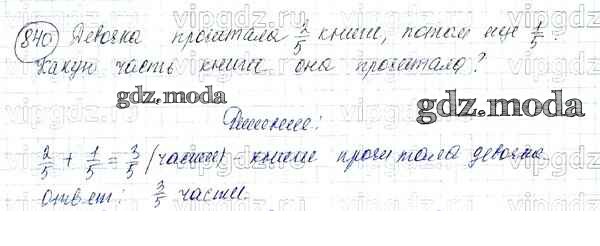 840 Девочка прочитала 2/5 книги, потом еще 1/5.
Какую часть книги она прочитала?
gdz.moda gdz.moda
Решение:
2/5 + 1/5 = 3/5 (части) - книги прочитала девочка.
ответ: 3/5 части.